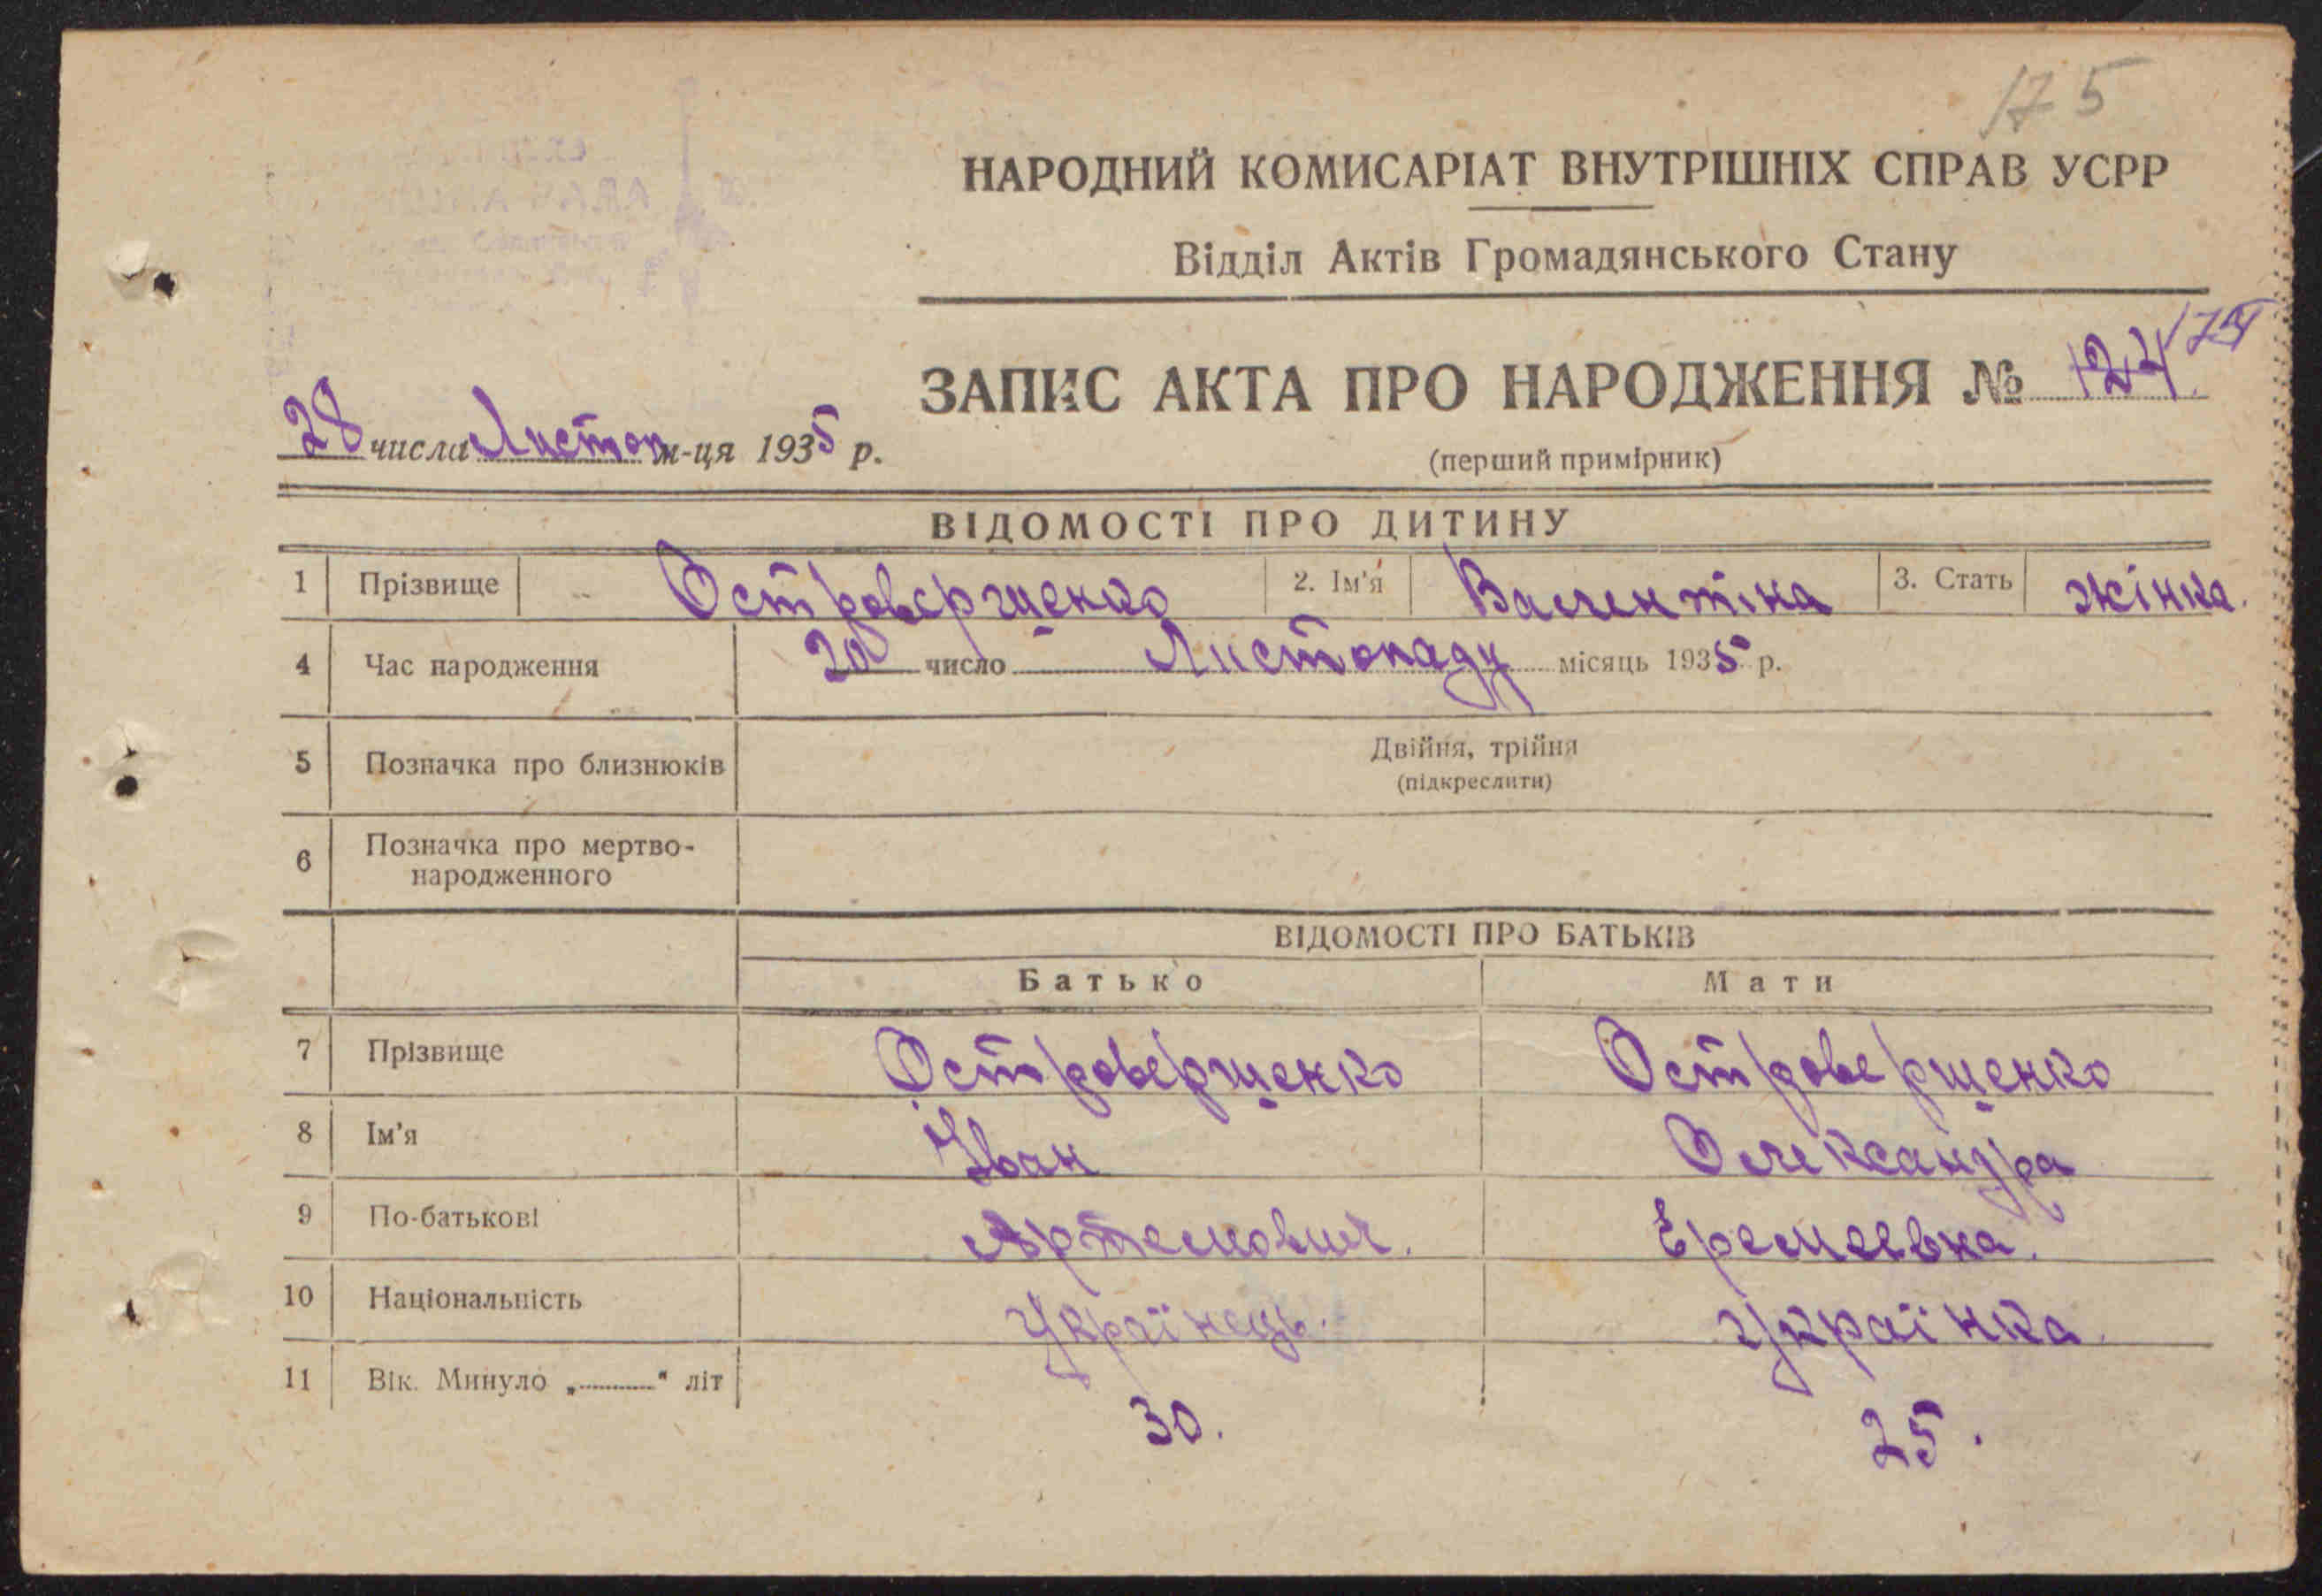 175
НАРОДНИЙ КОМИСАРІАТ ВНУТРІШНІХ СПРАВ УСРР
Відділ Актів Громадянського Стану
ЗАПИС АКТА ПРО НАРОДЖЕННЯ № 124
28 числа Листоп м-ця 1935 р.
(перший примірник)
ВІДОМОСТІ ПРО ДИТИНУ
1 Прізвище Островерщенко 2. Ім'я Валентіна 3. Стать жінка.
4 Час народження 20 число Листопаду місяць 1935 р.
5 Позначка про близнюків Двійня, трійня
(підкреслити)
6 Позначка про мертво-
народженного
ВІДОМОСТІ ПРО БАТЬКІВ
Батько Мати
7 Прізвище Островерщенко Островерщенко
8 Ім'я Іван Олександра
9 По-батькові Артемович. Еремеевна.
10 Національність Українець. Українка.
11 Вік. Минуло „ " літ 30. 25.